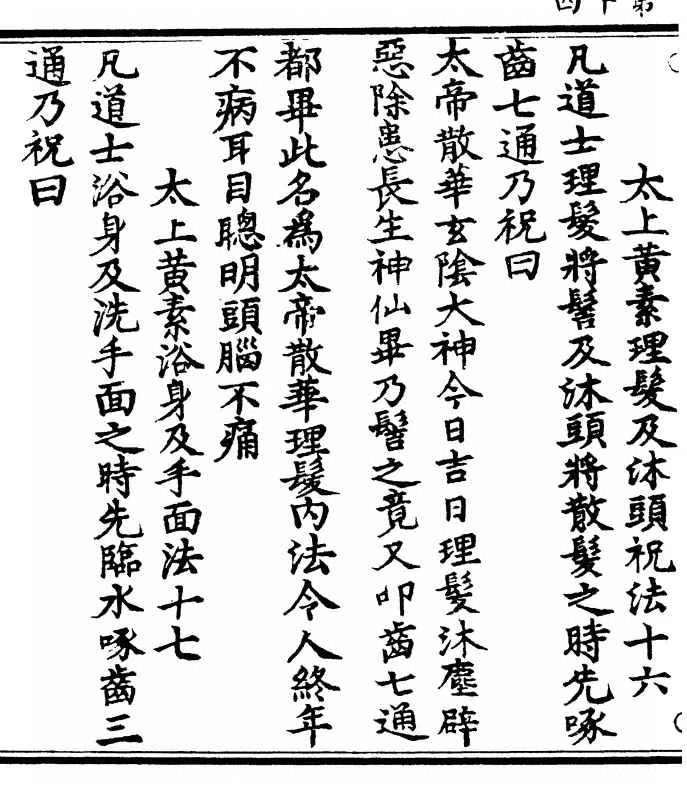 太上黃素理髮及沐頭祝法十六
凡道士理髮將髻及沐頭將散髮之時先啄
齒七通乃祝曰
太帝散華玄陰大神今日吉日理髮沐塵辟
惡除患長生神仙畢乃髻之竟又叩齒七通
都畢此名爲太帝散華理髮內法令人終年
不病耳目聰明頭腦不痛
太上黃素浴身及手面法十七
凡道士浴身及洗手面之時先臨水啄齒三
通乃祝曰